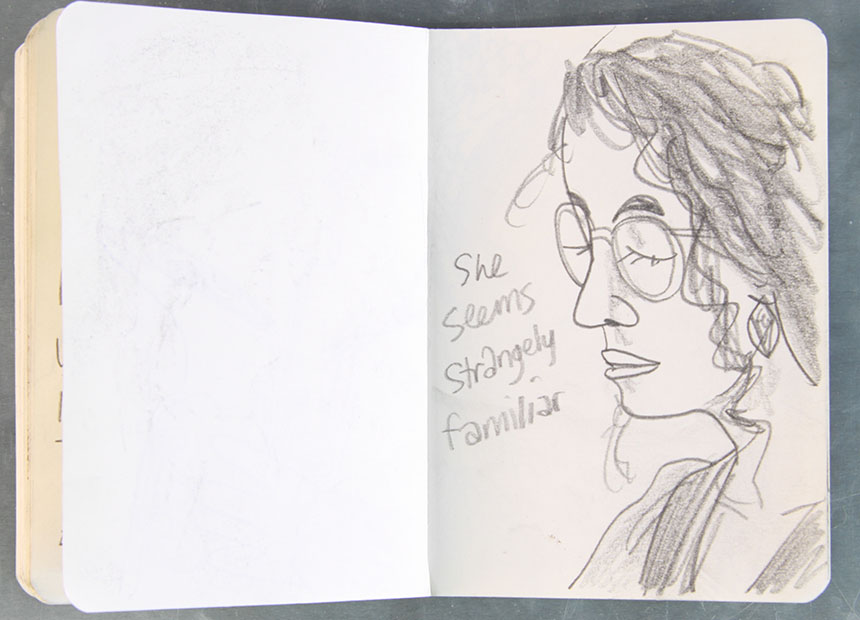 She
seems
strangely
familiar